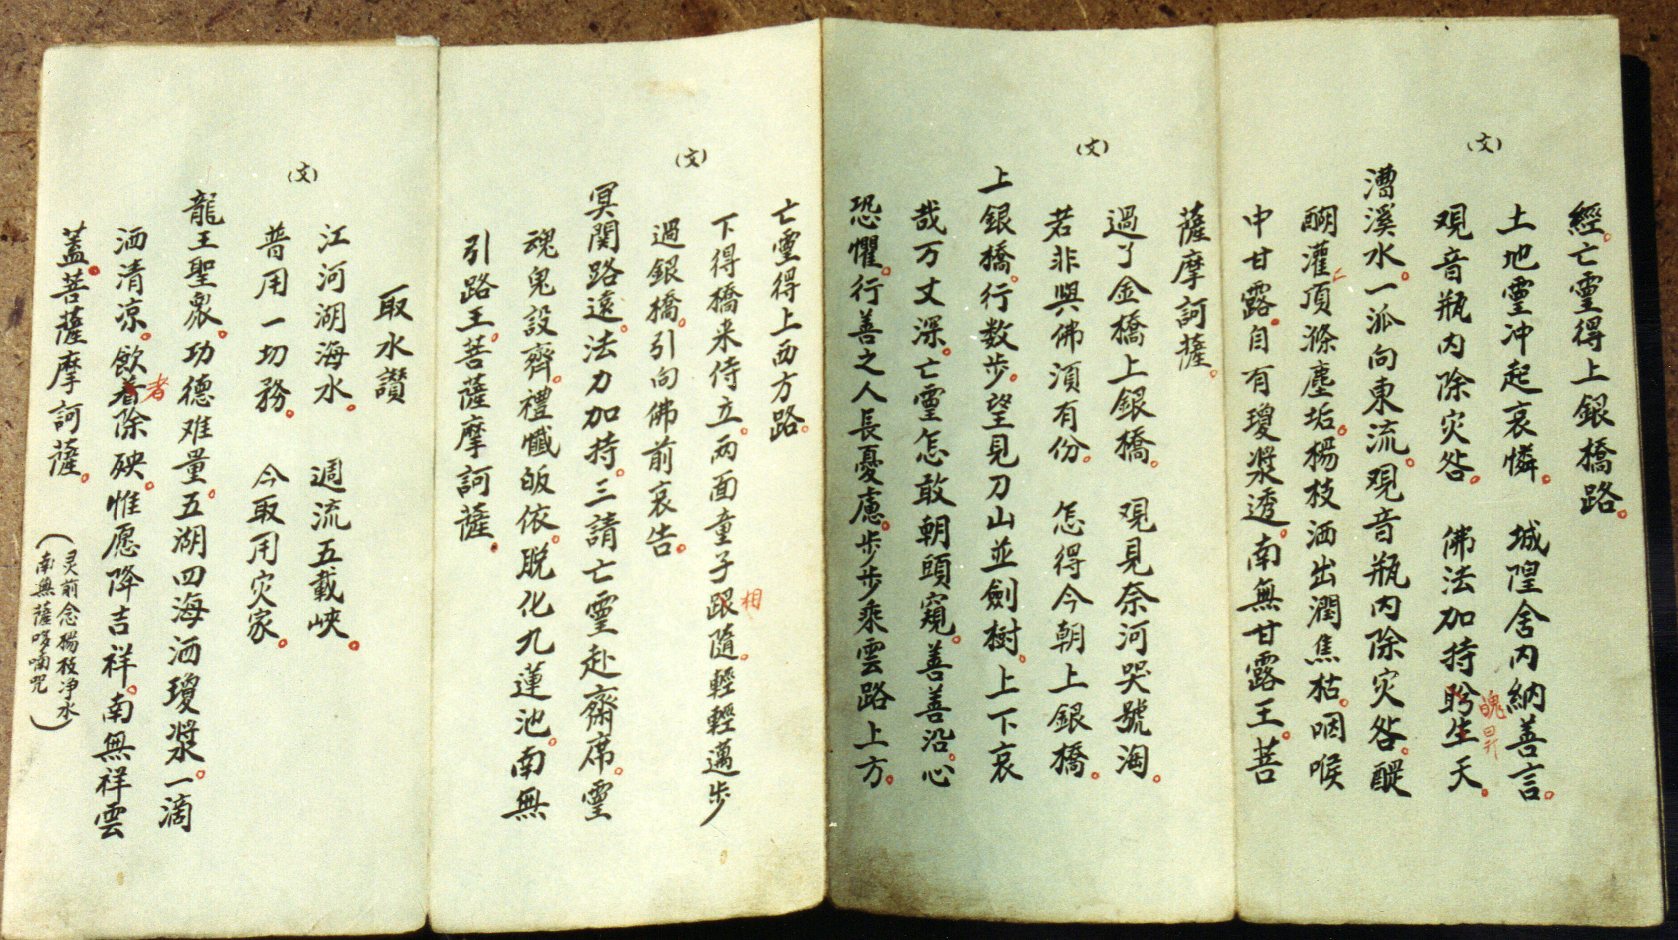 經。亡霊得上銀橋路。
(文)
土地霊冲起哀憐。 城隍舍内納善言。
观音瓶内除灾咎。 佛法加持盼生天。
魂昇
漕溪水。一派向東流。观音瓶内除灾咎。醍
醐灌頂滌塵垢。楊枝洒出潤焦枯。咽喉
中甘露。自有瓊漿透。南無甘露王。菩
薩摩訶薩。
(文)
過了金橋上銀橋。 观見奈河哭號淘。
若非與佛湏有份。 怎得今朝上銀橋。
上銀橋。行数步。望見刀山並劍樹。上下哀
哉万丈深。亡霊怎敢朝頭窺。善善沿。心
恐懼。行善之人長憂慮。步步乘雲路上方。
亡霊得上西方路。
(文)
下得橋来侍立。两面童子跟隨。輕輕邁步
相
過銀橋。引向佛前哀告。
冥関路遠。法力加持。三請亡霊赴齋席。霊
魂鬼設齊。禮懺皈依。脱化九蓮池。南無
引路王。菩薩摩訶薩。
取水讃
(文)
江河湖海水。 週流五載峽。
普用一切務。 今取用灾家。
龍王聖衆。功德难量。五湖四海洒瓊漿。一滴
洒清凉。飲着除殃。惟愿降吉祥。南無祥雲
者
蓋。菩薩摩訶薩。
(灵前念楊枝净水
南無薩哆喃咒)